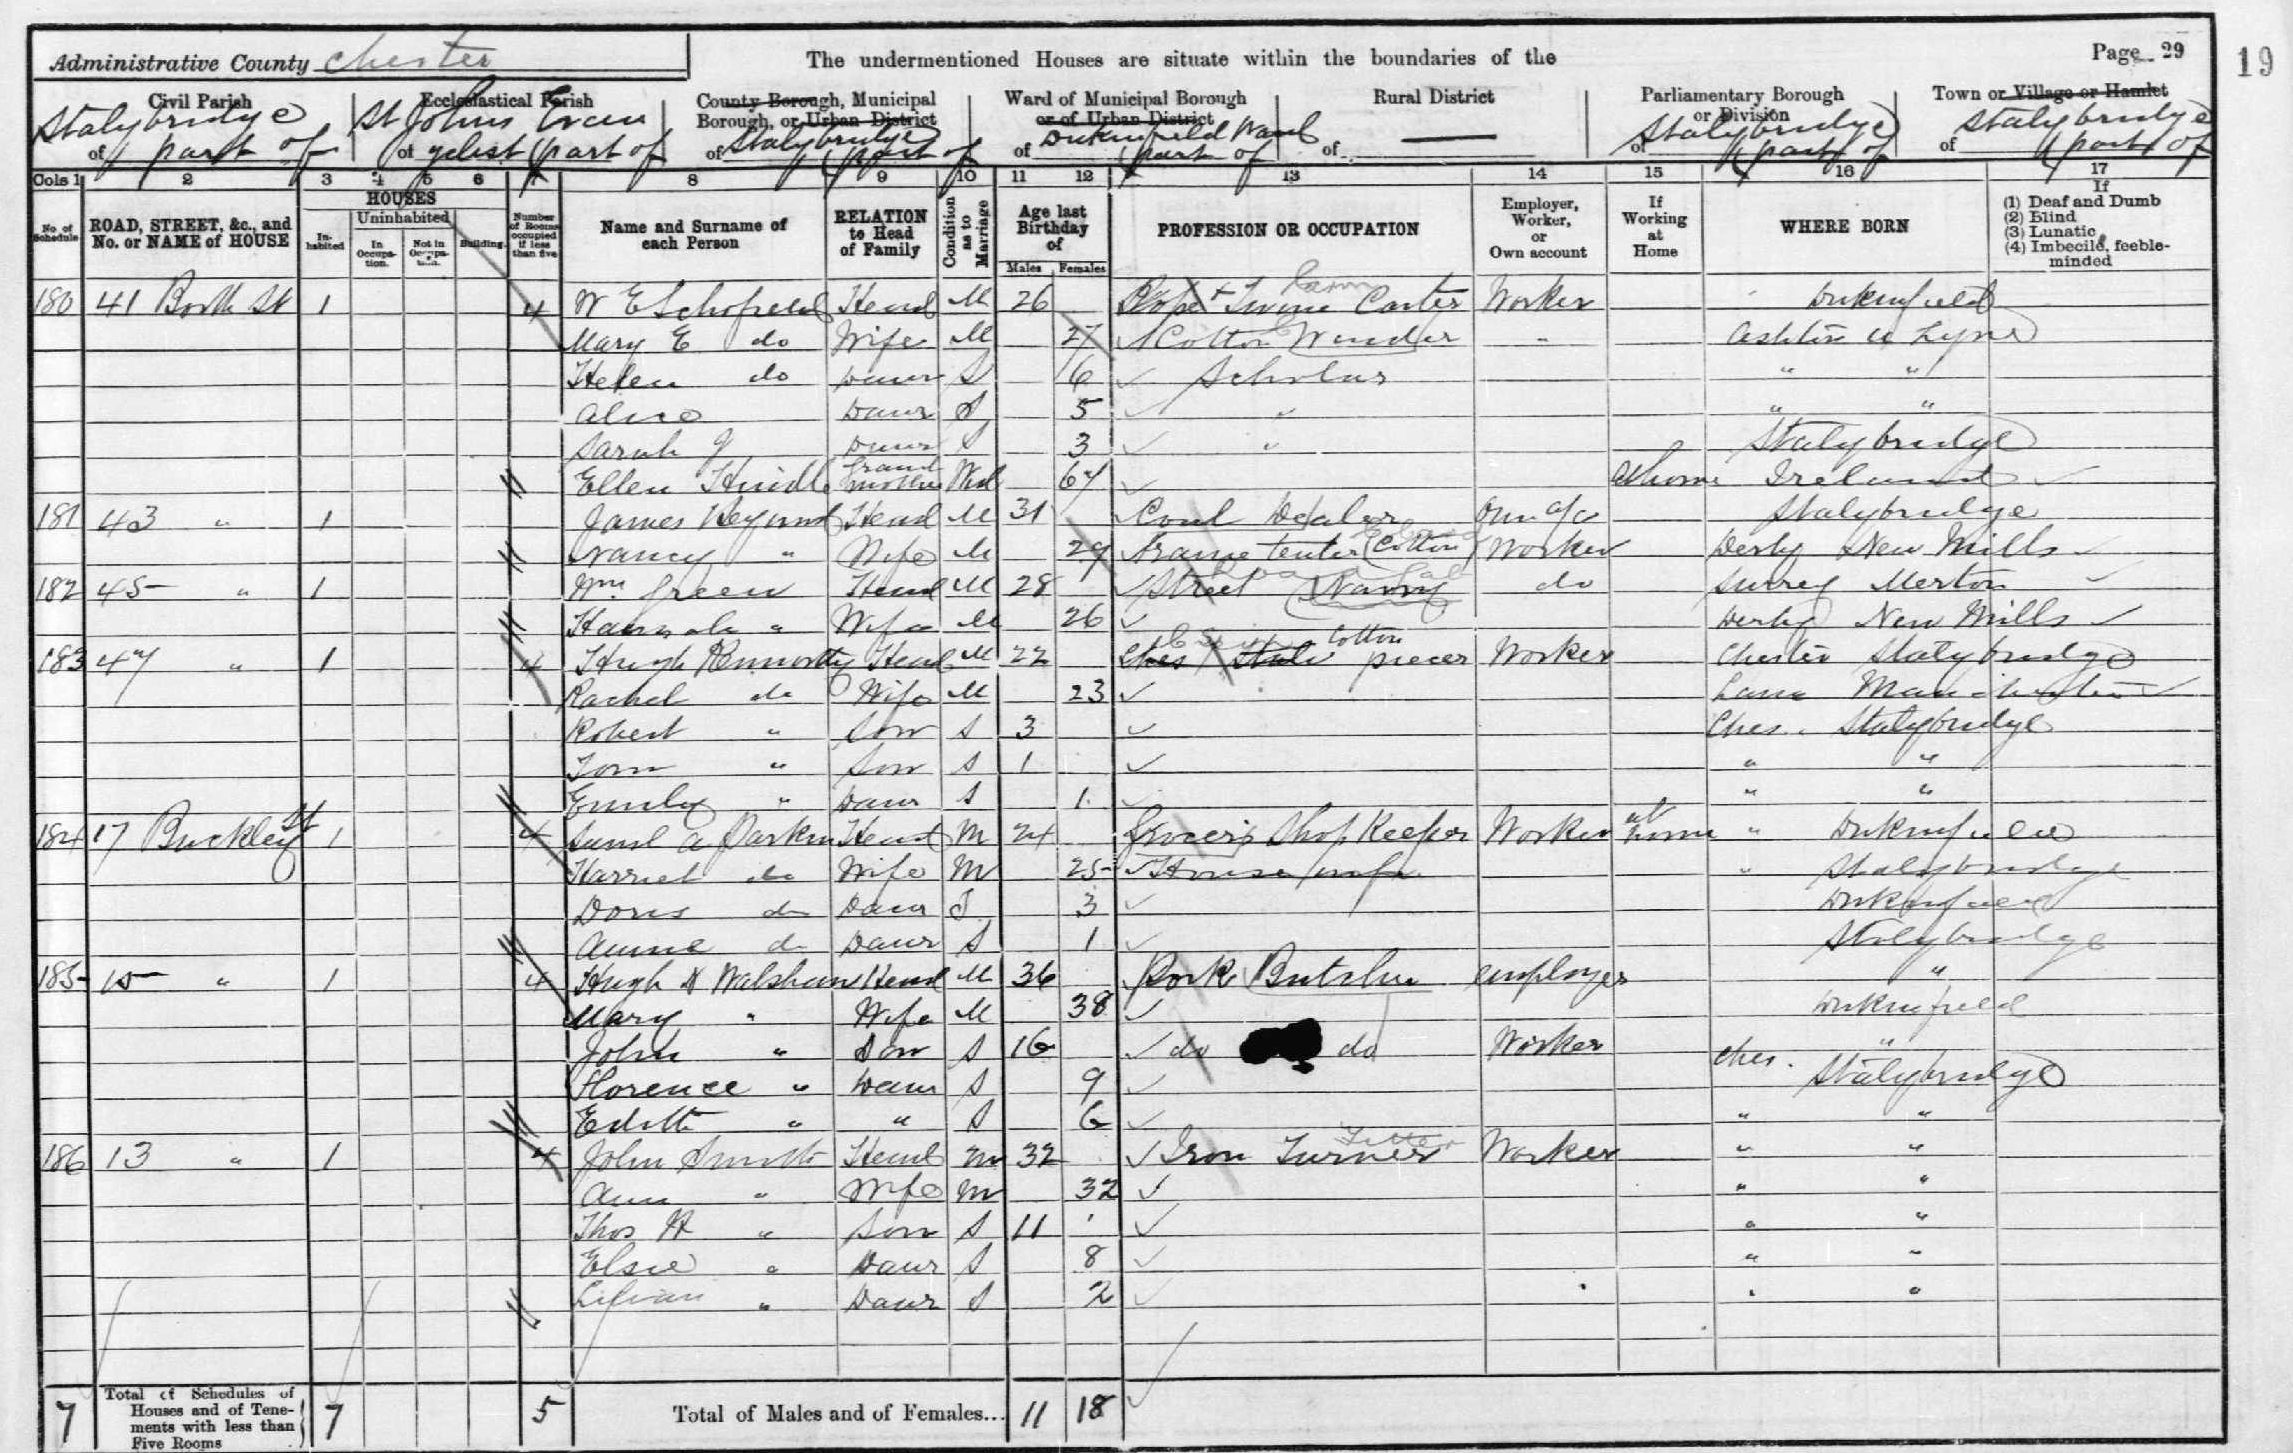 Administrative County Chester
The undermentioned Houses are situate within the boundaries of the
Page 29
19
Civil Parish
of Stalybridge part of
Ecclesiastical Parish
of St Johns Evangelist (part of
County Borough, Municipal Borough, or Urban District
of Stalybridge (part of
Ward of Municipal Borough or of Urban District
of Dukinfield Ward (part of
Rural District
of —
Parliamentary Borough or Division
of Stalybridge (part of
Town or Village or Hamlet
of Stalybridge (part of
Cols 1 2 3 4 5 6 7 8 9 10 11 12 13 14 15 16 17
No. of Schedule
ROAD, STREET, &c., and No. or NAME of HOUSE
HOUSES
Inhabited
Uninhabited
In Occupation.
Not in Occupation.
Building.
Number of Rooms occupied if less than five
Name and Surname of each Person
RELATION to Head of Family
Condition as to Marriage
Age last Birthday of
Males Females
PROFESSION OR OCCUPATION
Employer, Worker, or Own account
If Working at Home
WHERE BORN
If
(1) Deaf and Dumb
(2) Blind
(3) Lunatic
(4) Imbecile, feeble-minded
180 41 St 1 4 W E Schofield Head M 26 Rope + Twine Carter Worker Dukinfield
Mary E do Wife M 27 Cotton Winder " Ashton u Lyne
Helen do Daur S 6 Scholar " "
Alice Daur S 5 " " "
Sarah J Daur S 3 " Stalybridge
Ellen Hindle Grand mother Wid 67 at home Ireland
181 43 " 1 James Head M 31 Coal Dealer Own a/c Stalybridge
Nancy " Wife M 29 Frame Tenter (Cotton) Worker Derby New Mills
182 45 " 1 Wm Green Head M 28 Street (Navvy) do Surrey Merton
Hannah " Wife M 26 Derby New Mills
183 47 " 1 4 Hugh Kenworthy Head M 22 Cotton piecer Worker Chester Stalybridge
Rachel do Wife M 23 Lanc Manchester
Robert " Son S 3 Ches. Stalybridge
Tom " Son S 1 " "
Emily " Daur S 1 " "
184 17 Buckley St 1 4 Saml A Parkin Head M 24 Grocers Shop Keeper Worker at home " Dukinfield
Harriet do Wife M 25 House wife " Stalybridge
Doris do Daur S 3 Dukinfield
Annie do Daur S 1 Stalybridge
185 15 " 1 4 Hugh Walsham Head M 36 Pork Butcher employer "
Mary " Wife M 38 Dukinfield
John " Son S 16 do do Worker "
Florence " Daur S 9 Ches. Stalybridge
Edith " " S 6 " "
186 13 " 1 4 John Smith Head M 32 Iron Turner Fitter Worker " "
Ann " Wife M 32 " "
Thos H " Son S 11 " "
Elsie " Daur S 8 " "
Lilian " Daur S 2 " "
7 Total of Schedules of Houses and of Tenements with less than Five Rooms 7 5 Total of Males and of Females... 11 18